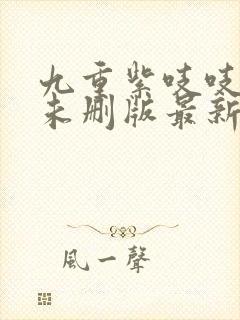 九重紫吱吱
未删版最新
風一聲